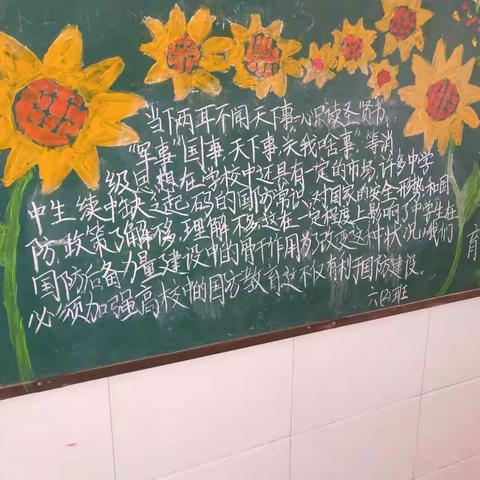 当下两耳不闻天下事一心只读圣贤书。
"军事"国事,天下事,关我啥事"等消
级思想在学校中还具有一定的市场,许多中学
中生续中缺乏起码的国防常识,对国家的安全形势和国
防,政策了解够,理解不够,这在一定程度上影响了中学生在
国防后备力量建设中的骨干作用为了改变这种状况,我们
必须加强高校中的国方教育这不仅有利于国防建设。
六(2)班
育